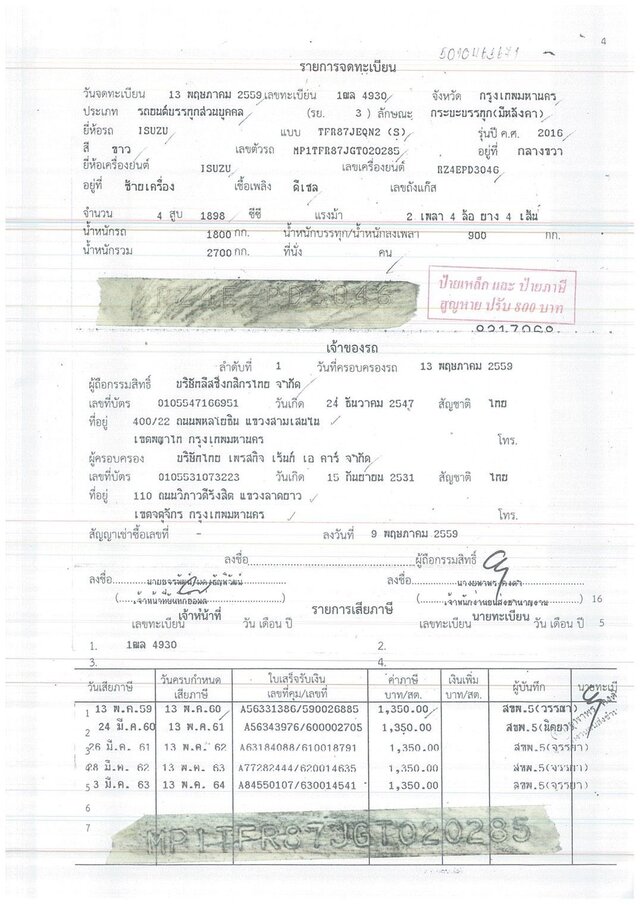 4
รายการจดทะเบียน
วันจดทะเบียน 13 พฤษภาคม 2559 เลขทะเบียน 1ฒล 4930 จังหวัด กรุงเทพมหานคร
ประเภท รถยนต์บรรทุกส่วนบุคคล (รย. 3 ) ลักษณะ กระบะบรรทุก(มีหลังคา)
ยี่ห้อรถ ISUZU แบบ TFR87JEQN2 (S) รุ่นปี ค.ศ. 2016
สี ขาว เลขตัวรถ MP1TFR87JGT020285 อยู่ที่ กลางขวา
ยี่ห้อเครื่องยนต์ ISUZU เลขเครื่องยนต์ RZ4EPD3046
อยู่ที่ ซ้ายเครื่อง เชื้อเพลิง ดีเซล เลขถังแก๊ส
จำนวน 4 สูบ 1898 ซีซี แรงม้า 2 เพลา 4 ล้อ ยาง 4 เส้น
น้ำหนักรถ 1800 กก. น้ำหนักบรรทุก/น้ำหนักลงเพลา 900 กก.
น้ำหนักรวม 2700 กก. ที่นั่ง คน
ป้ายเหล็ก และ ป้ายภาษี
สูญหาย ปรับ 800 บาท
เจ้าของรถ
ลำดับที่ 1 วันที่ครอบครองรถ 13 พฤษภาคม 2559
ผู้ถือกรรมสิทธิ์ บริษัทลีสซิ่งกสิกรไทย จำกัด
เลขที่บัตร 0105547166951 วันเกิด 24 ธันวาคม 2547 สัญชาติ ไทย
ที่อยู่ 400/22 ถนนพหลโยธิน แขวงสามเสนใน
เขตพญาไท กรุงเทพมหานคร โทร.
ผู้ครอบครอง บริษัทไทย เพรสทิจ เร้นท์ เอ คาร์ จำกัด
เลขที่บัตร 0105531073223 วันเกิด 15 กันยายน 2531 สัญชาติ ไทย
ที่อยู่ 110 ถนนวิภาวดีรังสิต แขวงลาดยาว
เขตจตุจักร กรุงเทพมหานคร โทร.
สัญญาเช่าซื้อเลขที่ - ลงวันที่ 9 พฤษภาคม 2559
ลงชื่อ ผู้ถือกรรมสิทธิ์
ลงชื่อ ลงชื่อ
( ) ( ) 16
เจ้าหน้าที่ รายการเสียภาษี นายทะเบียน
เลขทะเบียน วัน เดือน ปี เลขทะเบียน วัน เดือน ปี 5
1. 1ฒล 4930 2.
3. 4.
วันเสียภาษี วันครบกำหนด ใบเสร็จรับเงิน ค่าภาษี เงินเพิ่ม ผู้บันทึก นายทะเบี
เสียภาษี เลขที่คุม/เลขที่ บาท/สต. บาท/สต.
1 13 พ.ค.59 13 พ.ค.60 A56331386/590026885 1,350.00 สขพ.5(วรรณา)
2 24 มี.ค.60 13 พ.ค.61 A56343976/600002705 1,350.00 สขพ.5(นิตยา)
3 26 มี.ค. 61 13 พ.ค. 62 A63184088/610018791 1,350.00 สขพ.5(จรรยา)
4 28 มี.ค. 62 13 พ.ค. 63 A77282444/620014635 1,350.00 สขพ.5(จรรยา)
5 3 มี.ค. 63 13 พ.ค. 64 A84550107/630014541 1,350.00 สขพ.5(จรรยา)
6
7 MP1TFR87JGT020285